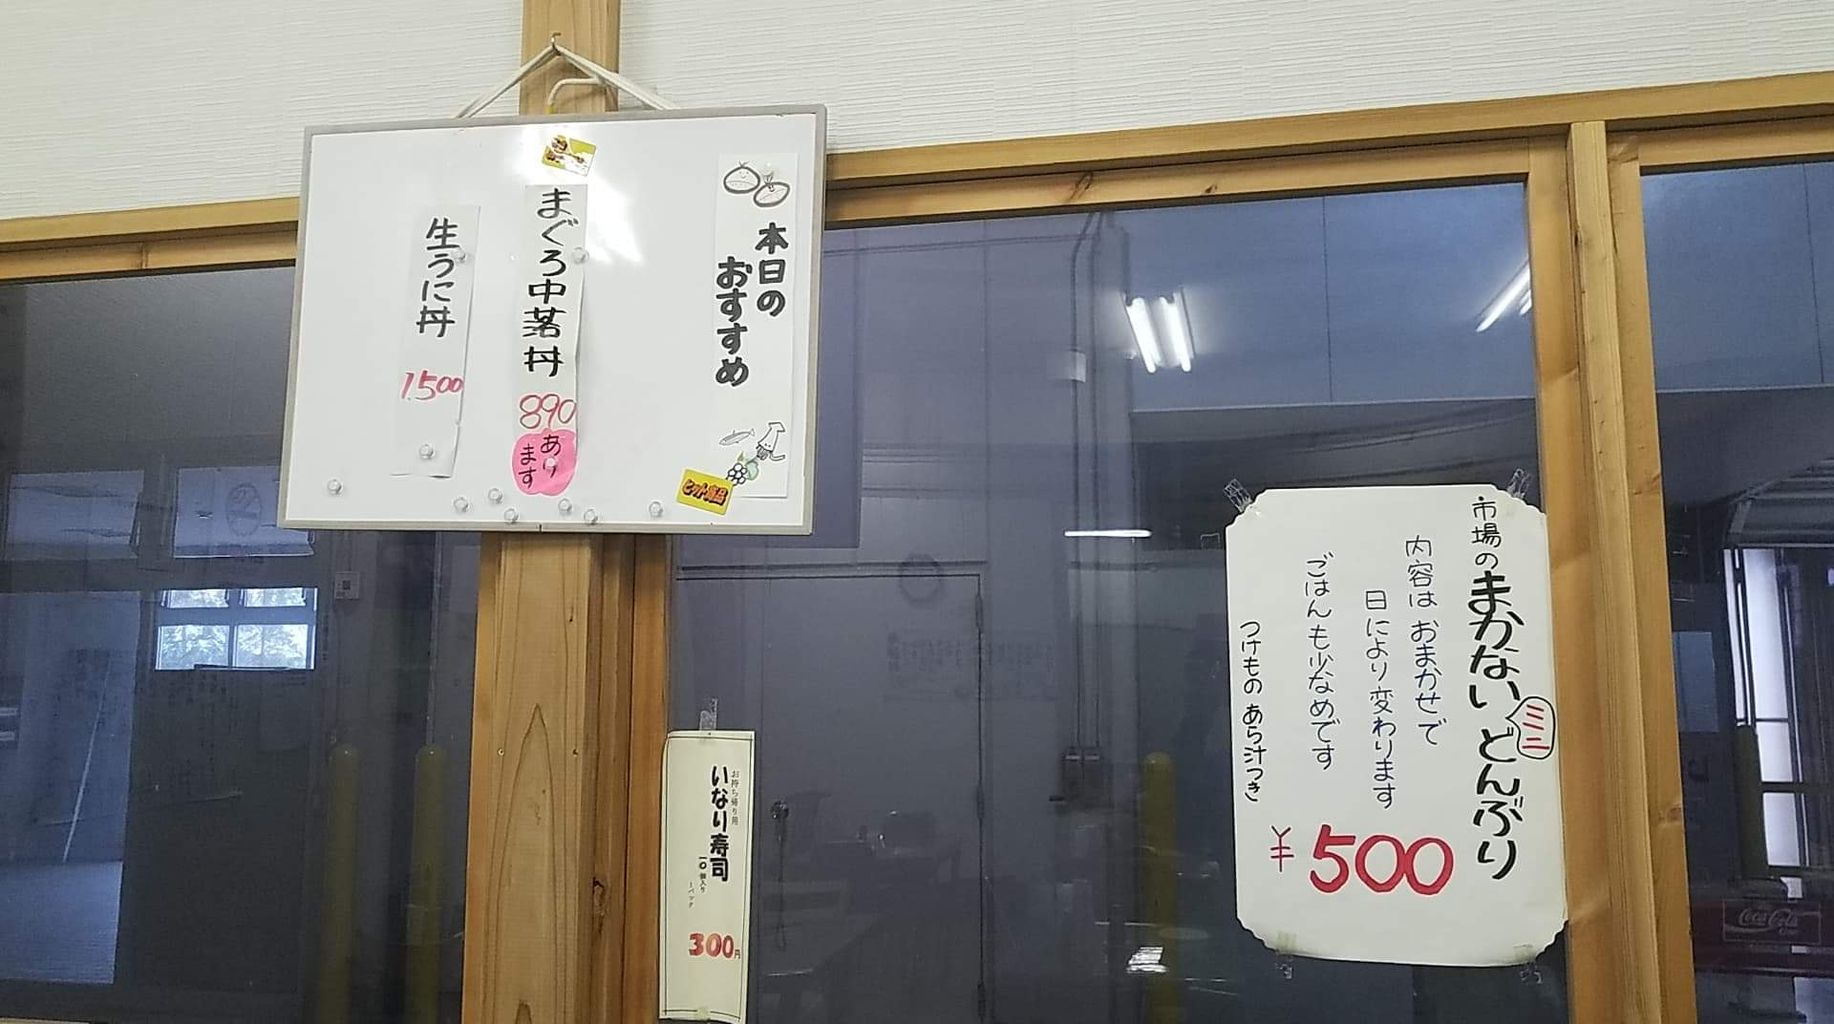 本日の
おすすめ
まぐろ中落丼
890
あり
ます
生うに丼
1500
ヒット商品
お持ち帰り用
いなり寿司
一〇個入り
一パック
300円
市場のまかないどんぶり
ミニ
内容はおまかせで
日により変わります
ごはんも少なめです
つけもの あら汁つき
¥500
Coca-Cola